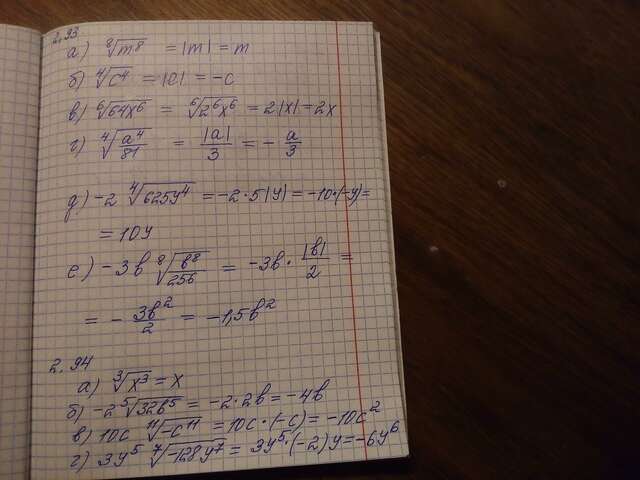 2.93
а) ⁸√m⁸ = |m| = m
б) ⁴√c⁴ = |c| = -c
в) ⁶√64x⁶ = ⁶√2⁶x⁶ = 2|x| = 2x
г) ⁴√(a⁴/81) = |a|/3 = - a/3
д) -2 ⁴√625y⁴ = -2·5|y| = -10·(-y) =
= 10y
е) -3b ⁸√(b⁸/256) = -3b · |b|/2 =
= - 3b²/2 = -1,5b²
2.94
а) ³√x³ = x
б) -2 ⁵√32b⁵ = -2·2b = -4b
в) 10c ¹¹√-c¹¹ = 10c·(-c) = -10c²
г) 3y⁵ ⁷√-128y⁷ = 3y⁵·(-2)y = -6y⁶